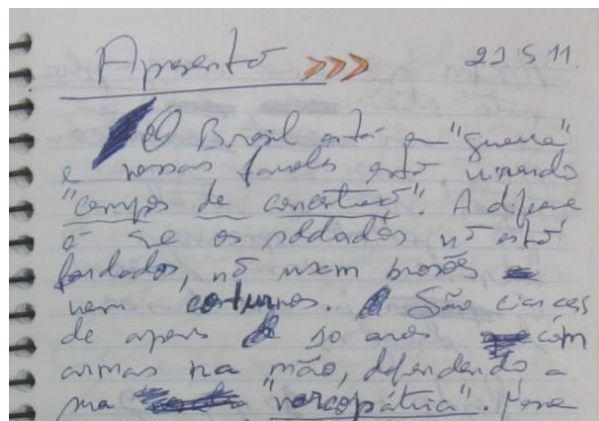 Apresentô >>> 22.5.11.
O Brasil está em "guerra"
e nossas favelas estô virando
"campos de concentraô". A diferene
é que os soldados nô estô
fardados, nô usam brasôs
nem coturnos. São ciances
de apens 10 anos com
armas na mão, defendendo a
sua "narcopátria". Nesse